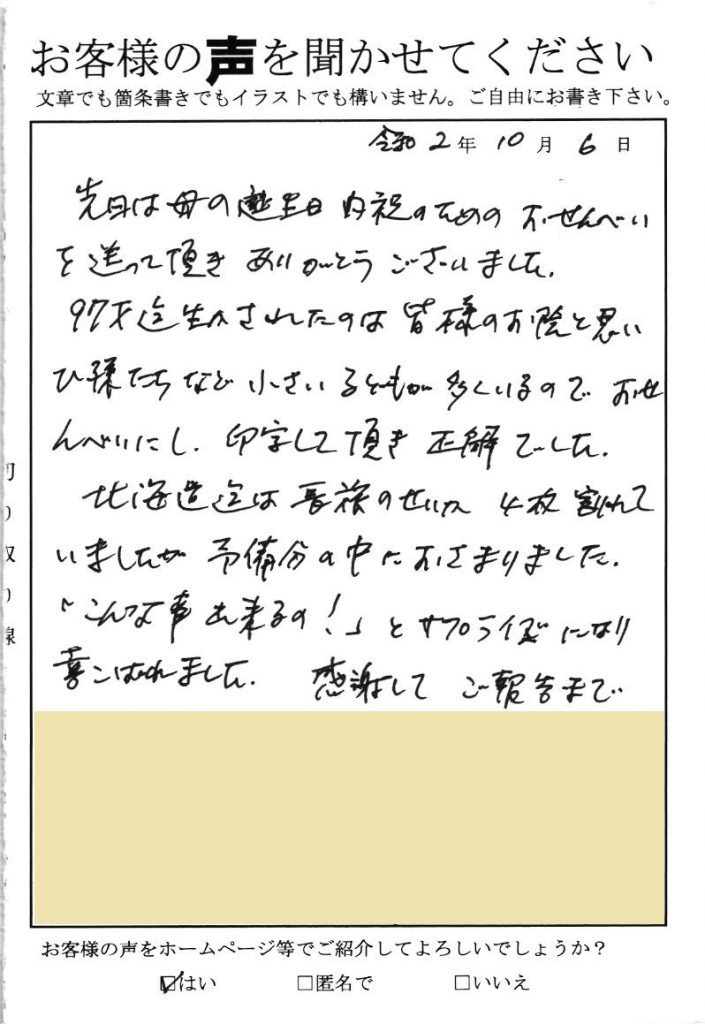 お客様の声を聞かせてください
文章でも箇条書きでもイラストでも構いません。ご自由にお書き下さい。
令和2年10月6日
先日は母の誕生日内祝のためのおせんべい
を送って頂きありがとうございました。
97才迄生かされたのは皆様のお陰と思い
ひ孫たちなど小さい子どもが多くいるのでおせ
んべいにし、印字して頂き正解でした。
北海道迄は長旅のせいか4枚割れて
いましたが予備分の中におさまりました。
「こんな事出来るの!」とサプライズになり
喜こばれました。感謝してご報告まで
切り取り線
お客様の声をホームページ等でご紹介してよろしいでしょうか?
☑はい □匿名で □いいえ